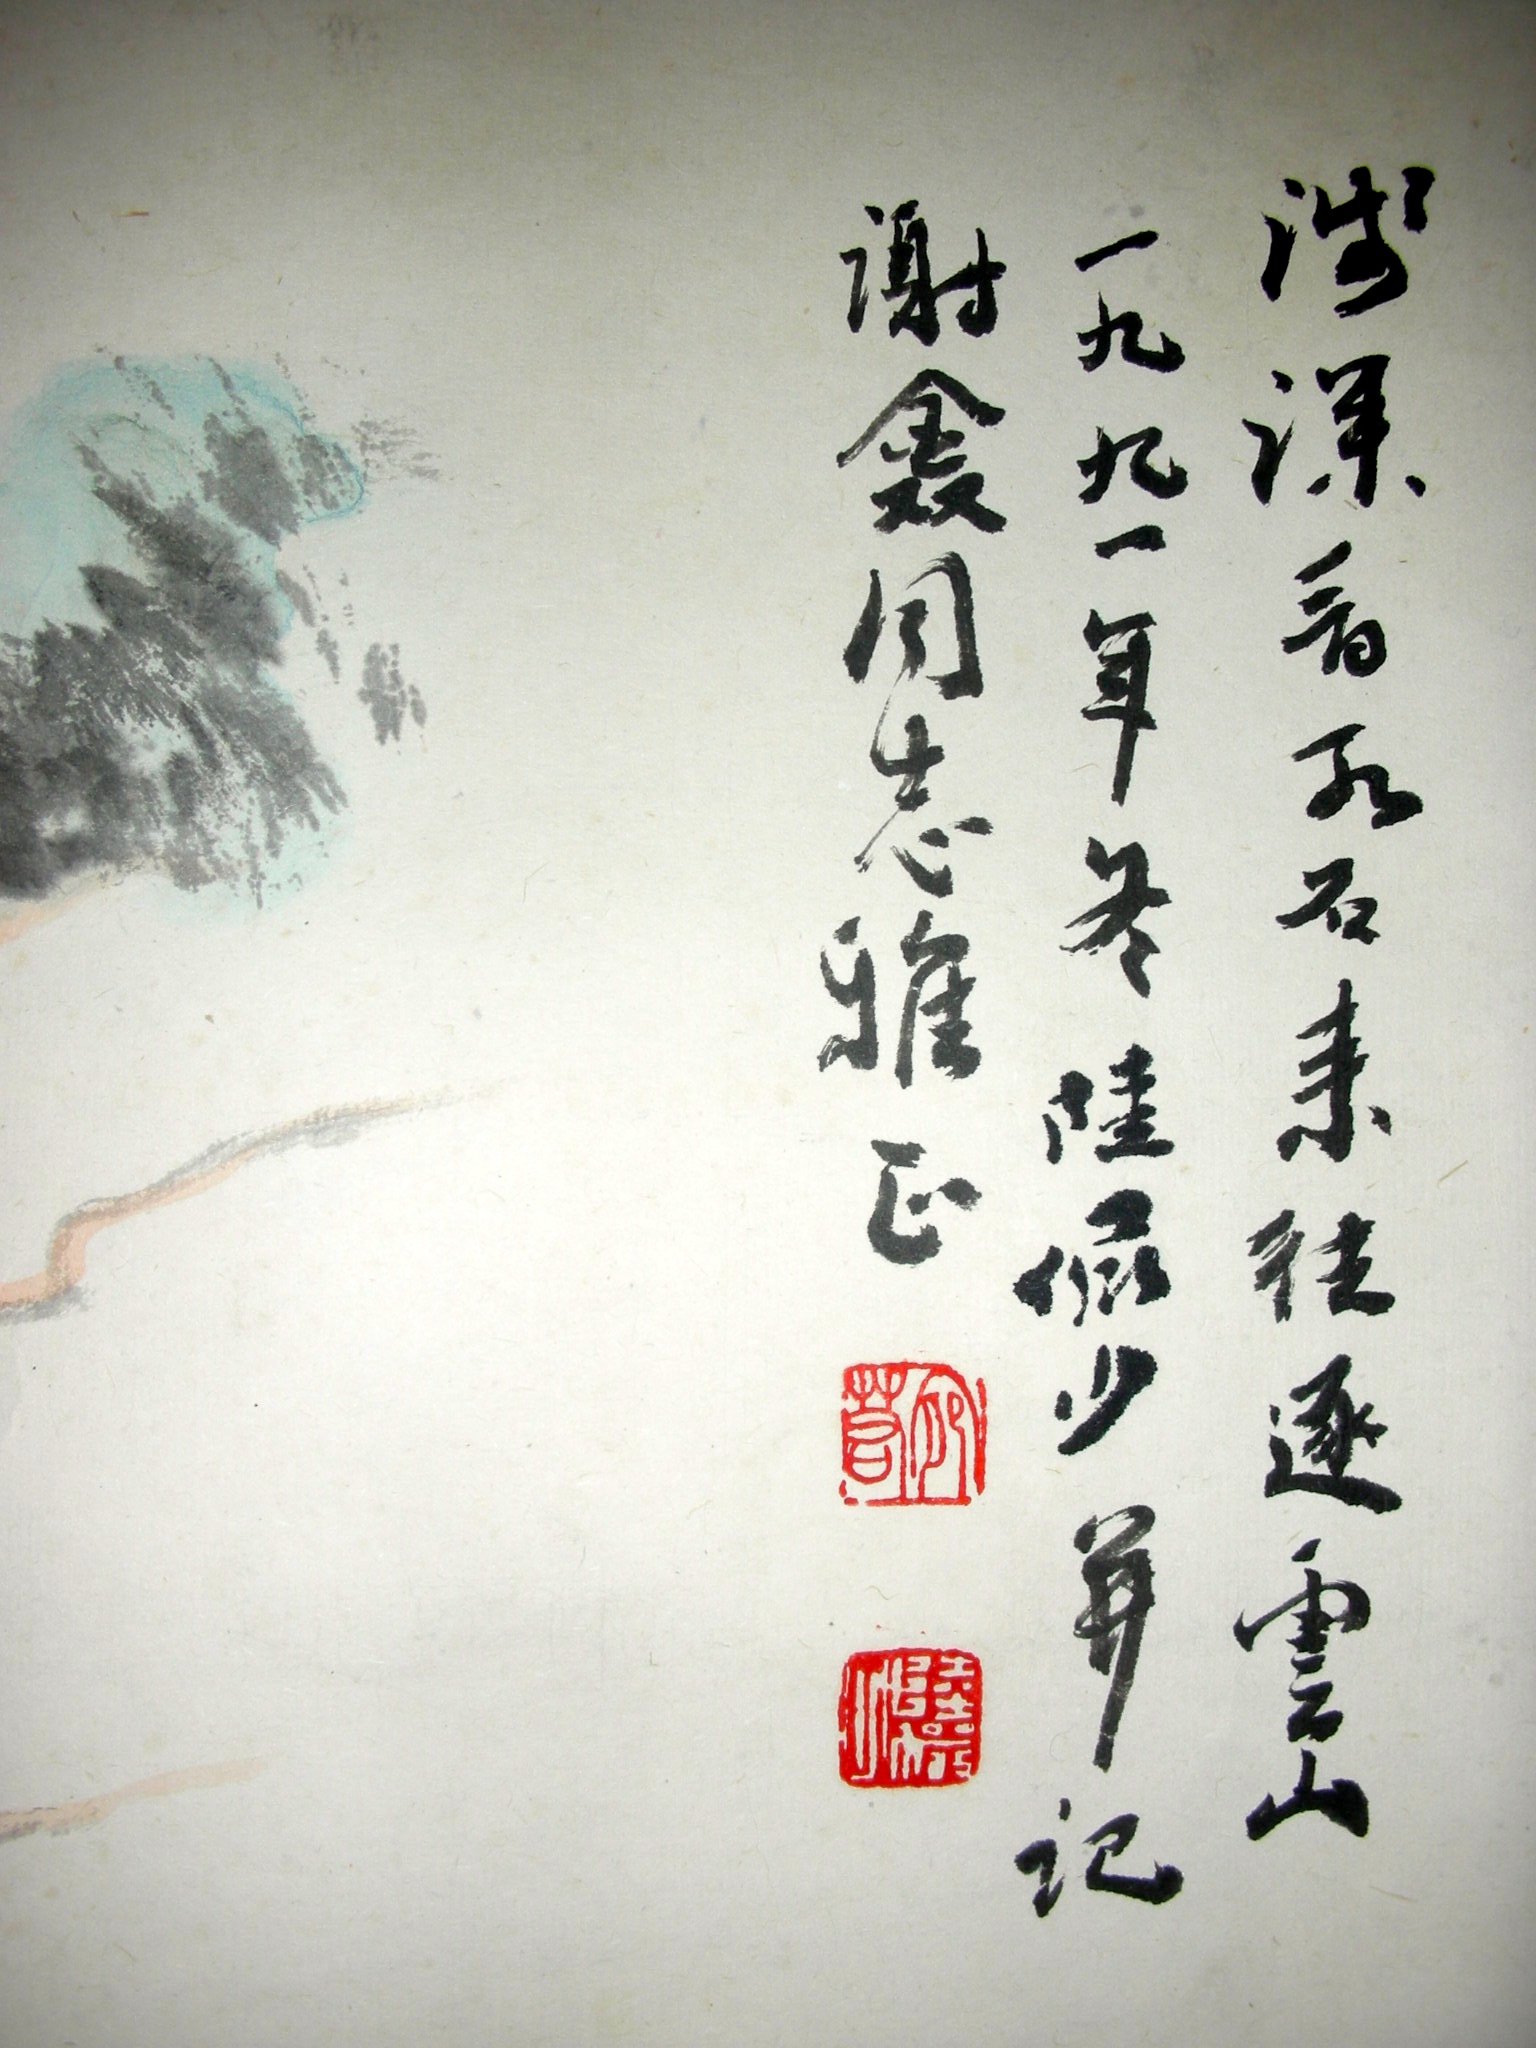 浅深看水石来往逐雲山
一九九一年冬陸儼少并記
謝鑫同志雅正